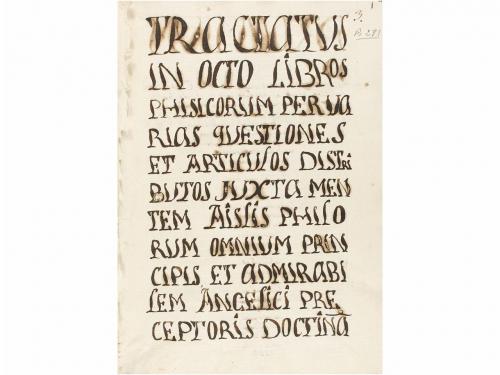 3.
TRACTATVS
IN OCTO LIBROS
PHISICORUM PER VA
RIAS QUESTIONES
ET ARTICULOS DISTRI
BUTOS JUXTA MEN
TEM AISLIS PHILO
RUM OMNIUM PRIN
CIPIS ET ADMIRABI
LEM ANGELICI PRE
CEPTORIS DOCTINA